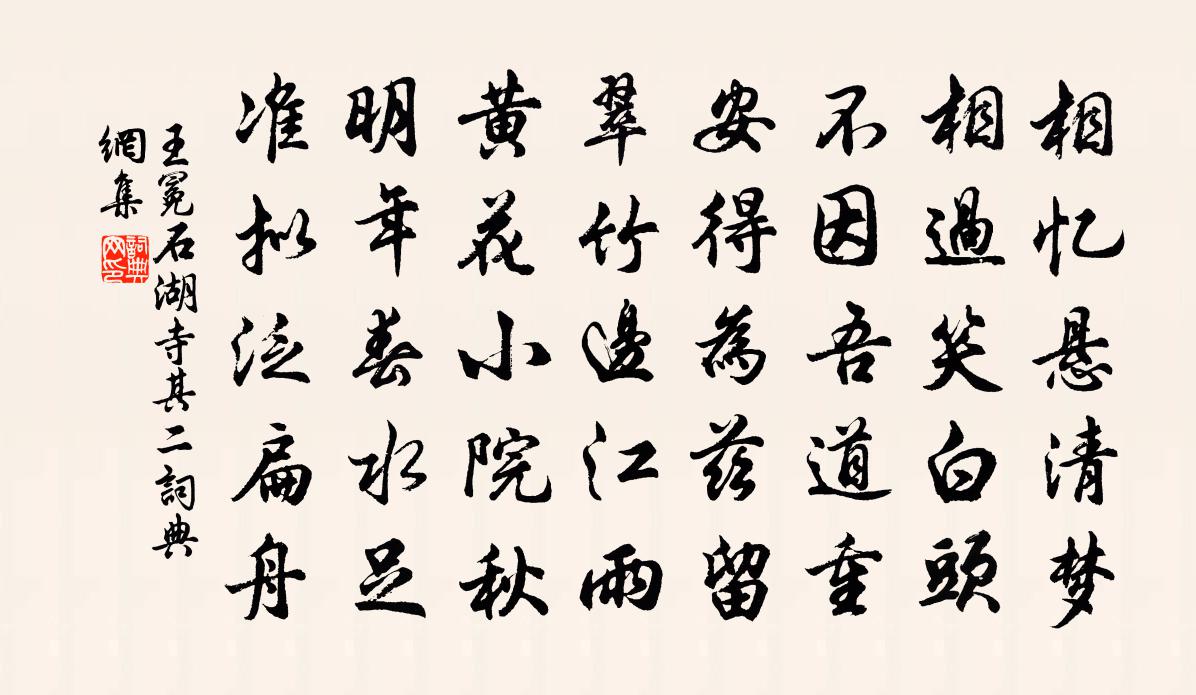 相忆悬清梦
相過笑白頭
不因吾道重
安得為茲留
翠竹邊江雨
黃花小院秋
明年春水足
准拟泛扁舟
王冕石湖寺其二詞典
網集
詞典
网印